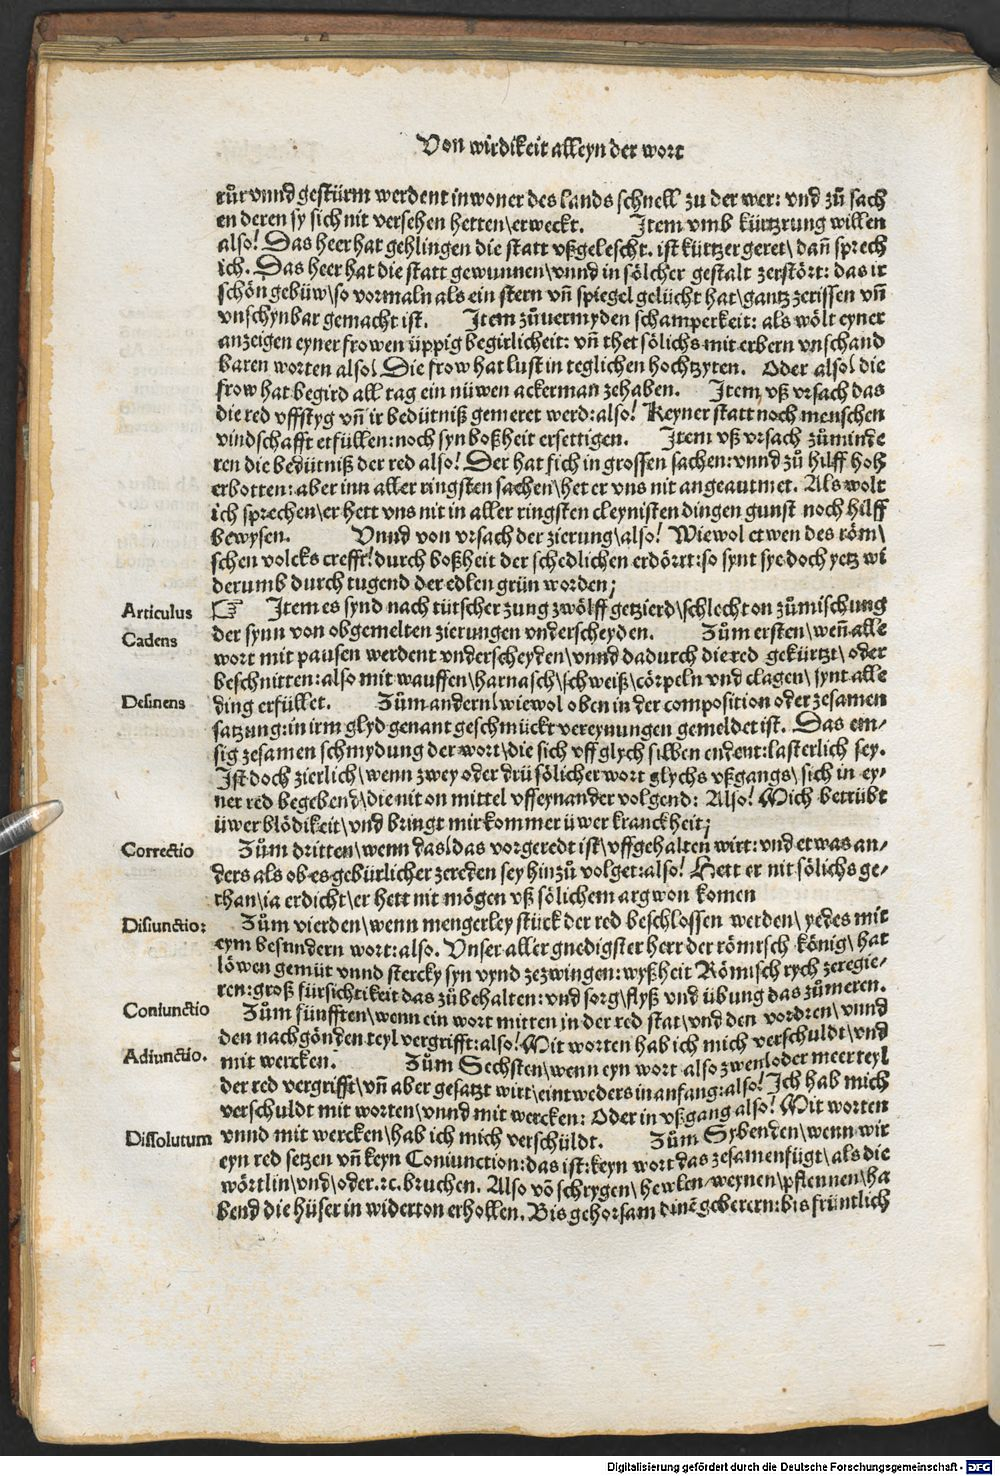 Von wirdikeit alleyn der wort
růr vnnd gestürm werdent inwoner des lands schnell zu der wer: vnd zů sach
en deren sy sich nit versehen hetten\ erweckt. Item vmb kürtzrung willen
also! Das heer hat gehlingen die statt vßgelescht. ist kürtzer geret\ dañ sprech
ich. Das heer hat die statt gewunnen\ vnnd in sölcher gestalt zerstört: das ir
schön gebüw\ so vormaln als ein stern vñ spiegel gelücht hat\ gantz zerissen vñ
vnschynbar gemacht ist. Item zůuermyden schamperkeit: als wölt eyner
anzeigen eyner frowen üppig begirlicheit: vñ thet sölichs mit erbern vnschand
baren worten also! Die frow hat lust in teglichen hochtzyten. Oder also! die
frow hat begird all tag ein nüwen ackerman zehaben. Item vß vrsach das
die red vffstyg vñ ir bedütniß gemeret werd: also! Keyner statt noch menschen
vindschafft etfüllen: noch syn boßheit ersettigen. Item vß vrsach zůminde
ren die bedütniß der red also! Der hat sich in grossen sachen: vnnd zů hilff hoh
erbotten: aber inn aller ringsten sachen\ het er vns nit angeautmet. Als wolt
ich sprechen\ er hett vns nit in aller ringsten cleynisten dingen gunst noch hilff
bewysen. Vnnd von vrsach der zierung\ also! Wiewol etwen des röm\
schen volcks crefft! durch boßheit der schedlichen erdörrt: so synt sye doch yetz wi
derumb durch tugend der edlen grün worden;
Articulus
☞ Item es synd nach tütscher zung zwölff getzierd\ schlecht on zůmischung
Cadens
der synn von obgemelten zierungen vnderscheyden. Zům ersten\ weñ alle
wort mit pausen werdent vnderscheyden\ vnnd dadurch die red gekürtzt\ oder
beschnitten: also mit wauffen\ harnasch\ schweiß\ cörpeln vnd clagen\ synt alle
Desinens
ding erfüllet. Zům andern\ wiewol oben in der composition oder zesamen
satzung: in irm glyd genant geschmückt vereynungen gemeldet ist. Das em-
sig zesamen schmydung der wort\ die sich vff glych silben endent: lasterlich sey.
Ist doch zierlich\ wenn zwey oder drü sölicher wort glychs vßgangs\ sich in ey-
ner red begebend\ die nit on mittel vff eynander volgend: Also! Mich betrübt
üwer blödikeit\ vnd bringt mir kommer üwer kranckheit;
Correctio
Zům dritten\ wenn das\ das vorgeredt ist\ vffgehalten wirt: vnd etwas an-
ders als ob es gebürlicher zereden sey hinzů volget: also! Hett er nit sölichs ge-
than\ ia erdicht\ er hett nit mögen vß sölichem argwon komen
Disiunctio:
Zům vierden\ wenn mengerley stück der red beschlossen werden\ yedes mit
eym besundern wort: also. Vnser aller gnedigster herr der römisch könig\ hat
löwen gemüt vnnd stercky syn vynd zezwingen: wyßheit Römisch rych zeregie-
ren: groß fürsichtikeit das zůbehalten: vnd sorg\ flyß vnd übung das zůmeren.
Coniunctio
Zům fünfften\ wenn ein wort mitten in der red stat\ vnd den vordren\ vnnd
den nachgönden teyl vergrifft: also! Mit worten hab ich mich verschuldt\ vnd
Adiunctio.
mit wercken. Zům Sechsten\ wenn eyn wort also zwen\ oder meer teyl
der red vergrifft\ vñ aber gesatzt wirt\ eintweders in anfang: also! Ich hab mich
verschuldt mit worten\ vnnd mit wercken: Oder in vßgang also! Mit worten
Dissolutum
vnnd mit wercken\ hab ich mich verschüldt. Zům Sybenden\ wenn wir
eyn red setzen vñ keyn Coniunction: das ist: keyn wort das zesamenfügt\ als die
wörtlin\ vnd\ oder. ꝛc. bruchen. Also võ schrygen\ hewlen\ weynen\ pflennen\ ha
bend die hüser in widerton erhollen. Bis gehorsam dinẽ geberern: bis früntlich
Digitalisierung gefördert durch die Deutsche Forschungsgemeinschaft - DFG